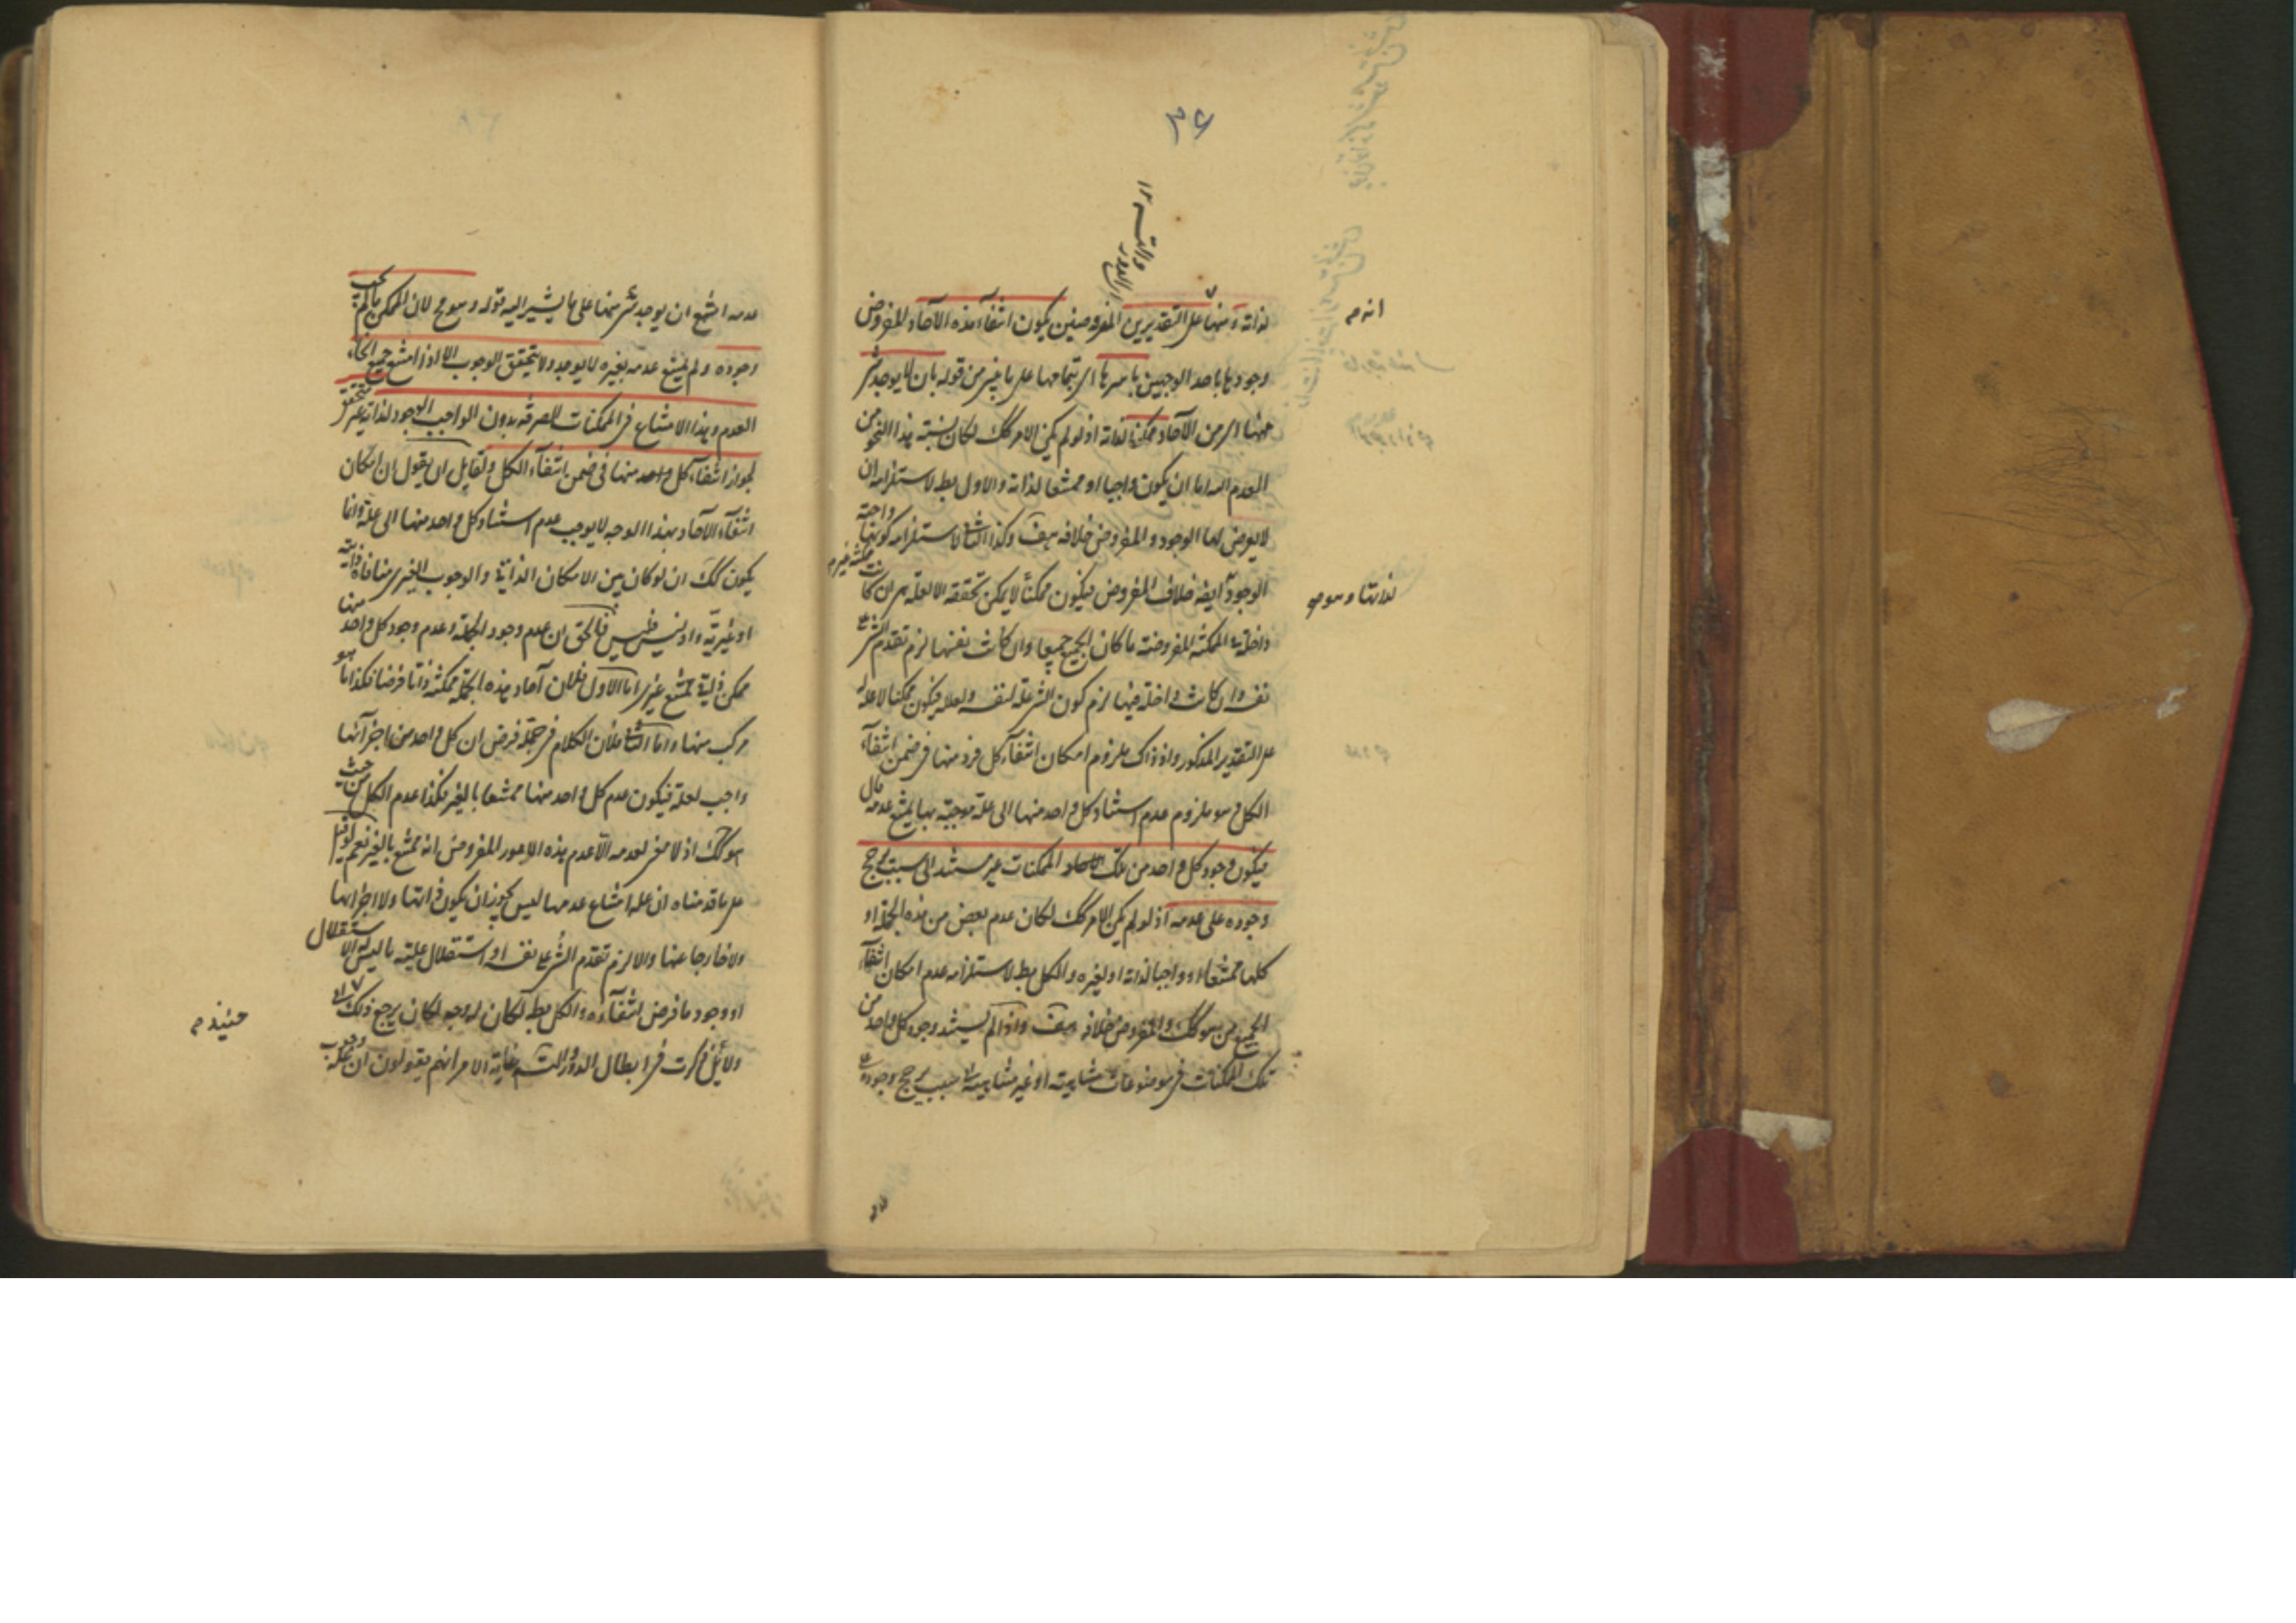 لذاته ومنها على التقديرين المفروضين يكون انتفآء هذه الآحاد المفروض
وجودها باحد الوجهين باسرها اى بتمامها على ما يفسر من قوله بان لا يوجد شئ
منها اى من الآحاد ممكنا لذاته اذ لو لم يكن الامر كك لكان نسبة هذا النحو من
العدم اليه اما ان يكون واجبا او ممتنعا لذاته والاول بط لاستلزامه ان
لا يعرض لها الوجود والمفروض خلافه هف وكذا الثانى لاستلزامه كونها واجبة
الوجود ايضه خلاف المفروض فيكون ممكنا لا يمكن تحققه الا لعلة هى ان كانت
داخلة المفروضة ما كان الجميع جميعا وان كانت نفسها لزم تقدم الشئ على
نفسه وان كانت داخلة فيها لزم كون الشئ علة لنفسه ولعلله فيكون ممكنا لا علة له
على التقدير المذكور واذ ذاك ملزوم امكان انتفآء كل فرد منها فى ضمن انتفآء
الكل وهو ملزوم عدم استناد كل واحد منها الى علة موجبة بها يمتنع عدمه قال
فيكون وجود كل واحد من تلك الآحاد الممكنات غير مستند الى سبب يرجح
وجوده على عدمه اذ لو لم يكن الامر كك لكان عدم بعض من هذه الجملة او
كلها ممتنعا او واجبا لذاته او لغيره والكل بط لاستلزامه عدم امكان انتفآء
الجميع من هو كك والمفروض خلافه هف واذا لم يستند وجود كل واحد من
تلك الممكنات فى موضوعات متناهية او غير متناهية الى سبب يرجح وجوده على
انه م
لذاتها وهو م
عدمه امتنع ان يوجد شئ منها على ما يشير اليه قوله وهو مح لان الممكن ما لم يجب
وجوده ولم يمتنع عدمه بغيره لا يوجد ولا يتحقق الوجوب الا اذا امتنع جميع انحاء
العدم وهذا الامتناع فى الممكنات الصرفة بدون الواجب الوجود لذاته غير متحقق
لجواز انتفآء كل واحد منها فى ضمن انتفآء الكل ولقايل ان يقول ان امكان
انتفآء الآحاد بهذا الوجه لا يوجب عدم استناد كل واحد منها الى علة وانما
يكون كك ان لو كان بين الامكان الذاتى والوجوب الغيرى منافاة ذاتية
او غيرية واذ ليس فليس فالحق ان عدم وجود الجملة وعدم وجود كل واحد منها
ممكن ذاتى ممتنع غيرى اما الاول فلان آحاد هذه الجملة ممكنة ذاتا فرضا فكذا ما هو
مركب منها واما الثانى فلان الكلام فى جملة فرض ان كل واحد من اجزآئها
واجب لعلة فيكون عدم كل واحد منها ممتنعا بالغير فكذا عدم الكل من حيث
هو كك اذ لا معنى لعدمه الا عدم هذه الامور المفروض انه ممتنع بالغير نعم لو قيل
على ما قدمناه ان علة امتناع عدمها ليس يجوز ان يكون ذاتها ولا اجزاءها
ولا خارجا عنها والا لزم تقدم الشئ على نفسه او استقلال علية ما ليس له الاستقلال
او وجود ما فرض انتفآؤه والكل بط لكان له وجه لكان يرجع ذلك الى
دلائل ذكرت فى ابطال الدور والتسلسل غاية الامر انهم يقولون ان علة وجوب
حينئذ م